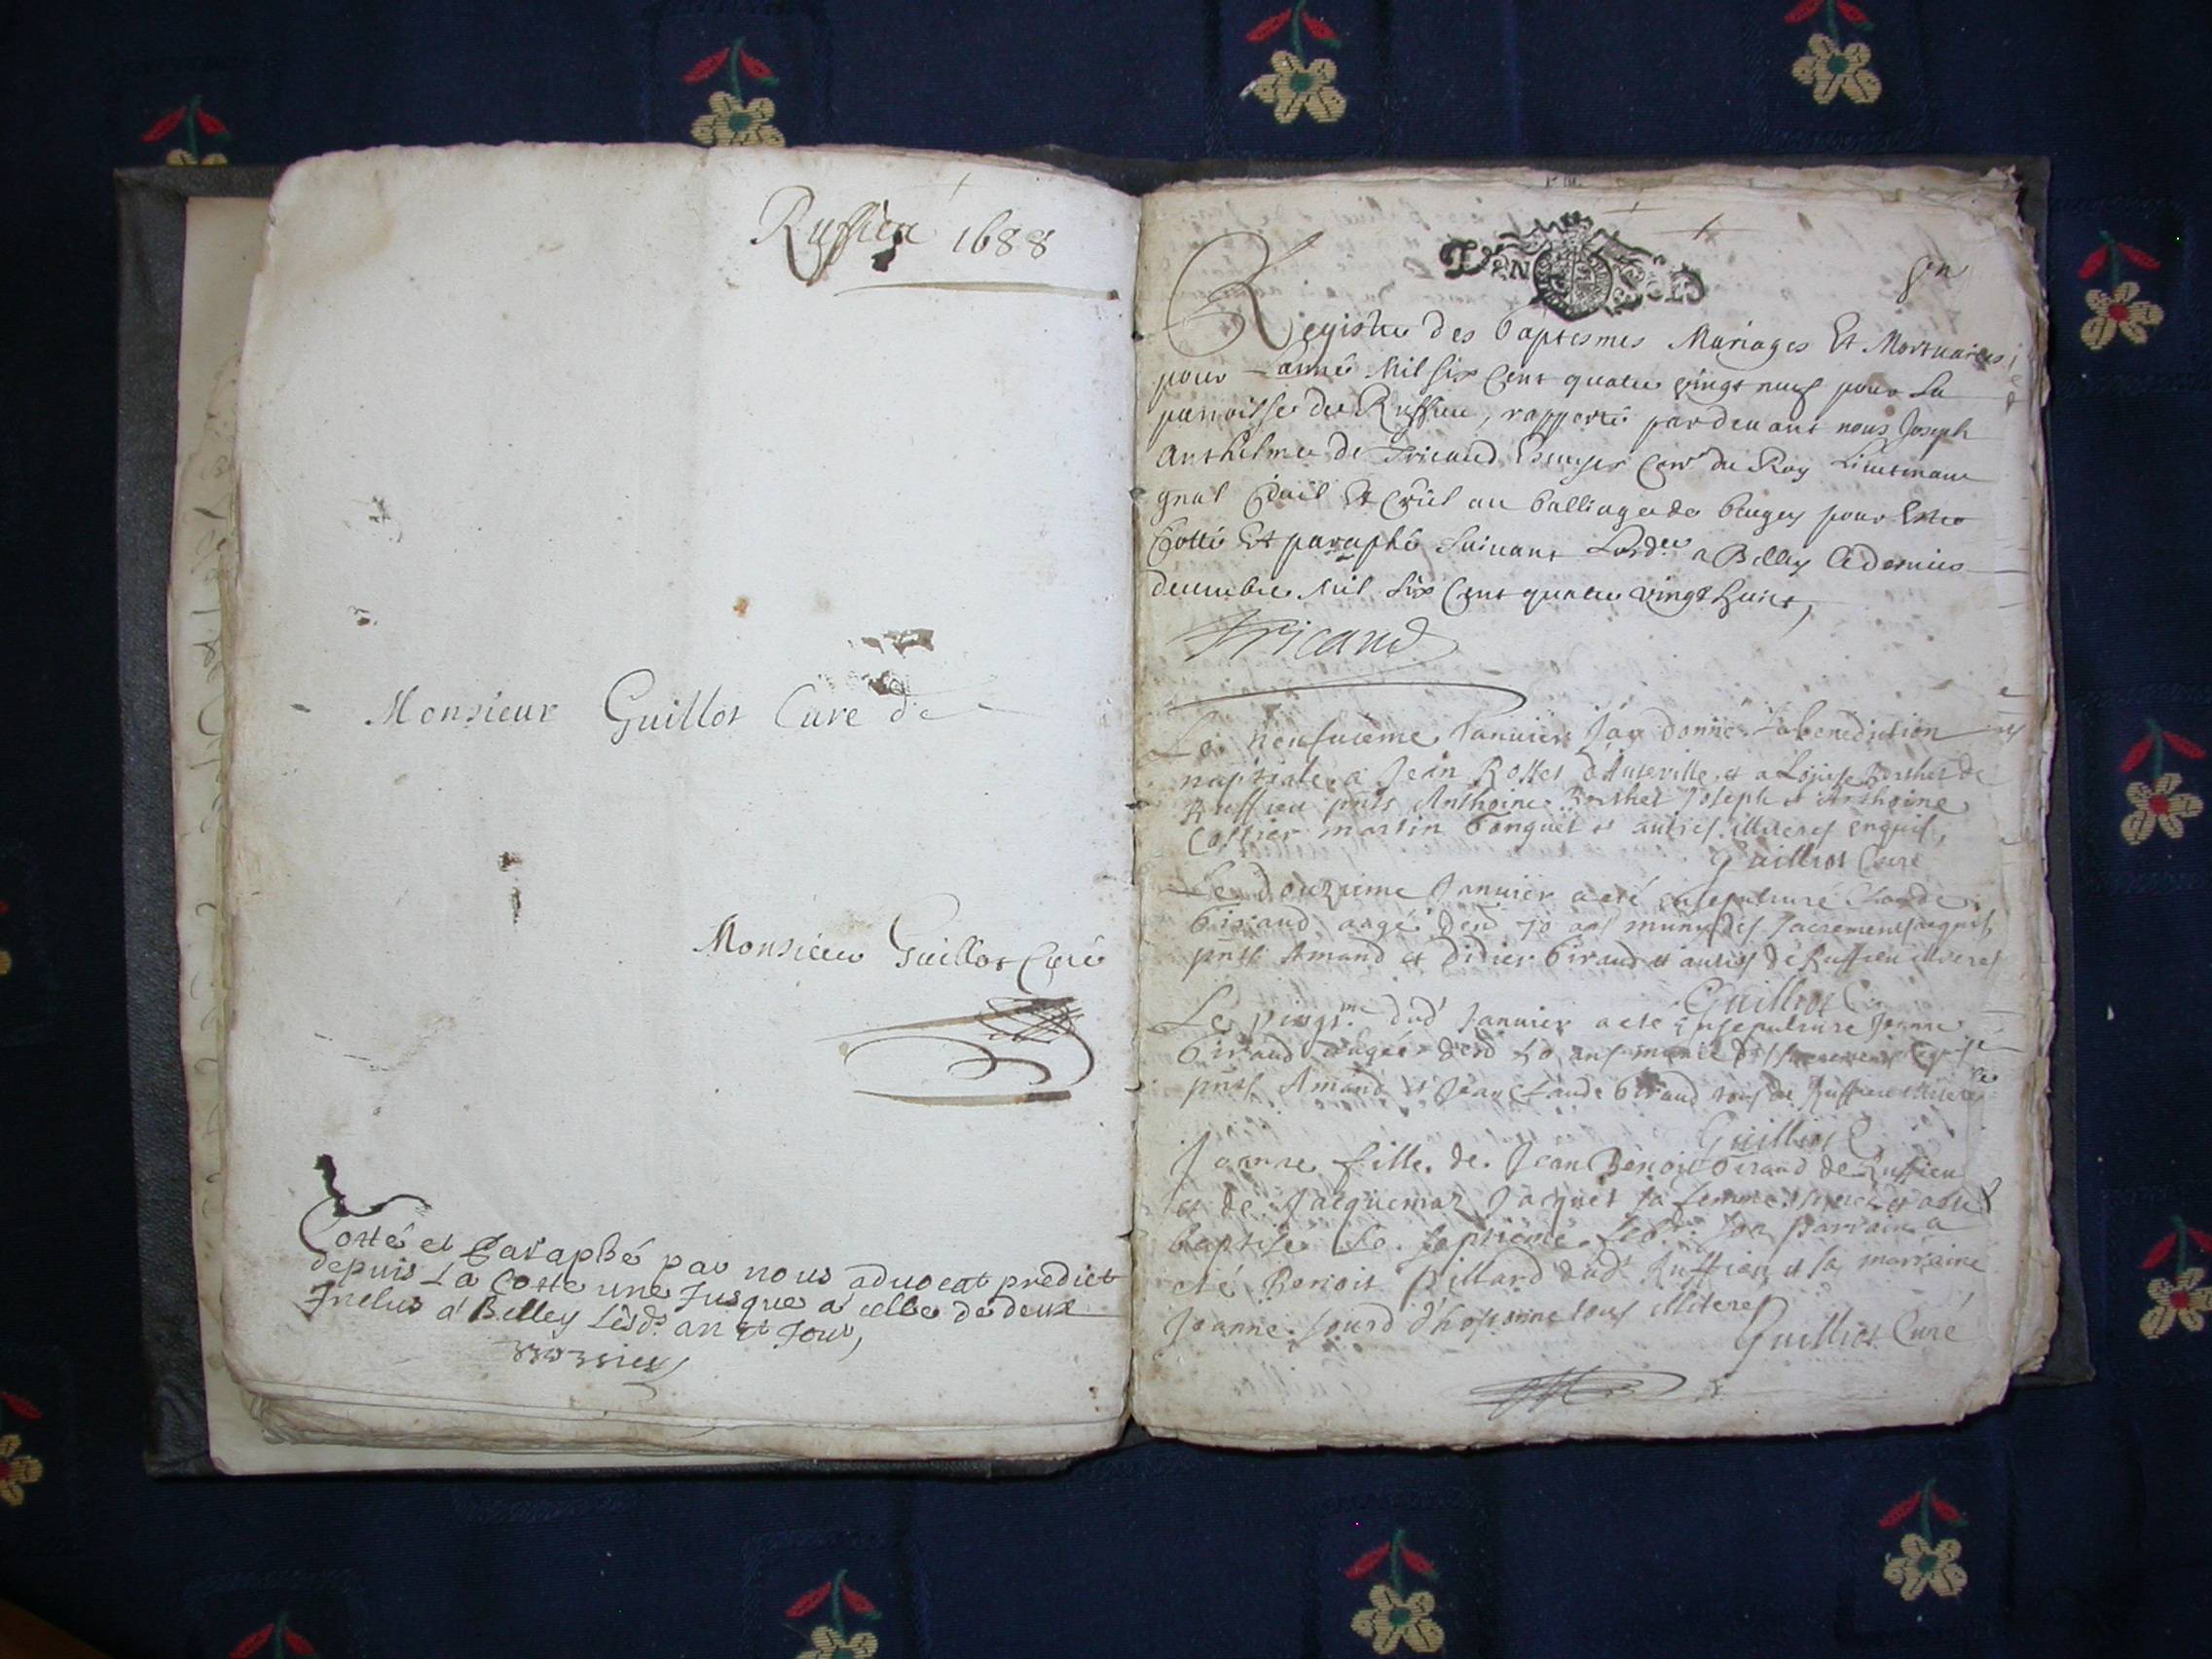 Ruffieu 1688
Monsieur Guillot Curé de
Monsieur Guillot Curé
Cotté et Paraphé par nous advocat predict
depuis La Cotte une Jusque a celle de deux
Inclus a Belley Lesd. an et Jour,
VN SOLD
Registre des baptesmes Mariages Et Mortuaires
pour Lanné Mil six Cent quatre vingt neuf pour La
parroisse de Ruffieu, rapporté pardevant nous Joseph
Anthelme de Tricaud Conr du Roy Lieutenant
gnal Civil Et au balliage de beugey pour Estre
Cotté Et paraphé Suivant a Belley Le dernier
decembre Mil Six Cent quatre vingt huict,
Tricaud
Le neufuieme Januier Jay donné La benediction
nuptiale a Jean Rosset et a Berthet de
Ruffieu pnts Anthoine Berthet Joseph et Anthoine
martin et autres illiteres enquis,
Guilliot Curé
Le douzieme Januier a eté ensepulturé Claude
Giraud aagé 70 ans muny des sacrements
pnts Amand et Didier Giraud et autres de Ruffieu illiteres
Guilliot C
Le vingtme dud Januier a eté Ensepulture Jeanne
Giraud aagée ans munie des
pnts Amand et Jean Claude Giraud tous de Ruffieu illiteres
Guilliot C
Joanne fille de Jean Benoit Giraud de Ruffieu
et de Jacquemaz Jacquet sa femme et a esté
baptisée Le septieme feb. son parrain a
eté Benoit Billiard dudt Ruffieu et sa marraine
Joanne tous illiteres
Guilliot Curé